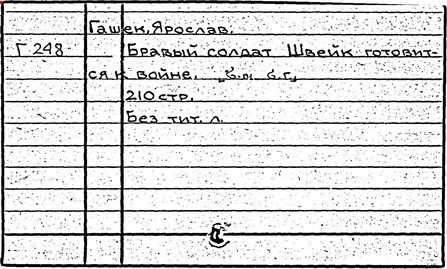 Гашек, Ярослав.
Г 248 Бравый солдат Швейк готовит-
ся к войне. [б.м. б.г.]
210 стр.
Без тит. л.